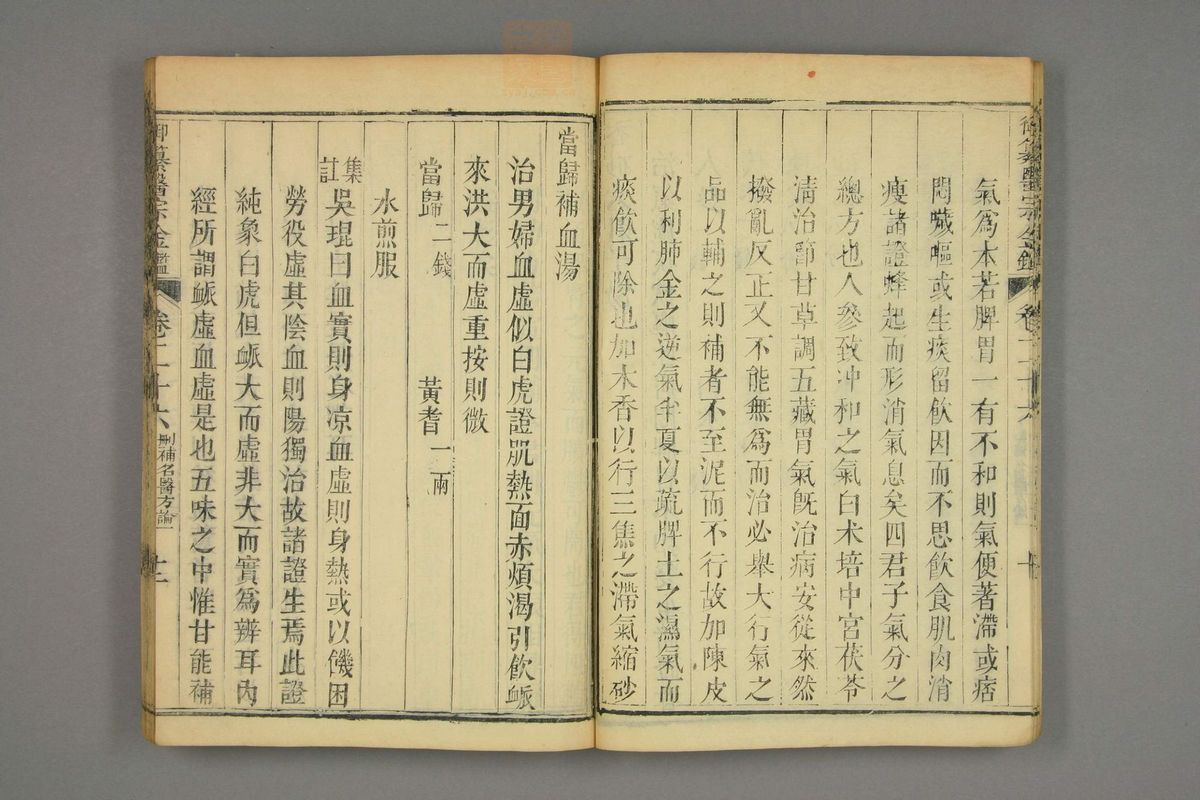 御纂醫宗金鑑 卷二十六
氣爲本若脾胃一有不和則氣便著滯或痞
悶噦嘔或生痰留飲因而不思飲食肌肉消
瘦諸證蜂起而形消氣息矣四君子氣分之
總方也人參致冲和之氣白术培中宮茯苓
清治節甘草調五藏胃氣旣治病安從來然
撥亂反正又不能無爲而治必舉大行氣之
品以輔之則補者不至泥而不行故加陳皮
以利肺金之逆氣半夏以疏脾土之濕氣而
痰飲可除也加木香以行三焦之滯氣縮砂
當歸補血湯
治男婦血虛似白虎證肌熱面赤煩渴引飲脈
來洪大而虛重按則微
當歸二錢 黃耆一兩
水煎服
集註吳琨曰血實則身凉血虛則身熱或以饑困
勞役虛其陰血則陽獨治故諸證生焉此證
純象白虎但脈大而虛非大而實爲辨耳內
經所謂脈虛血虛是也五味之中惟甘能補
御纂醫宗金鑑 卷二十六 刪補名醫方論